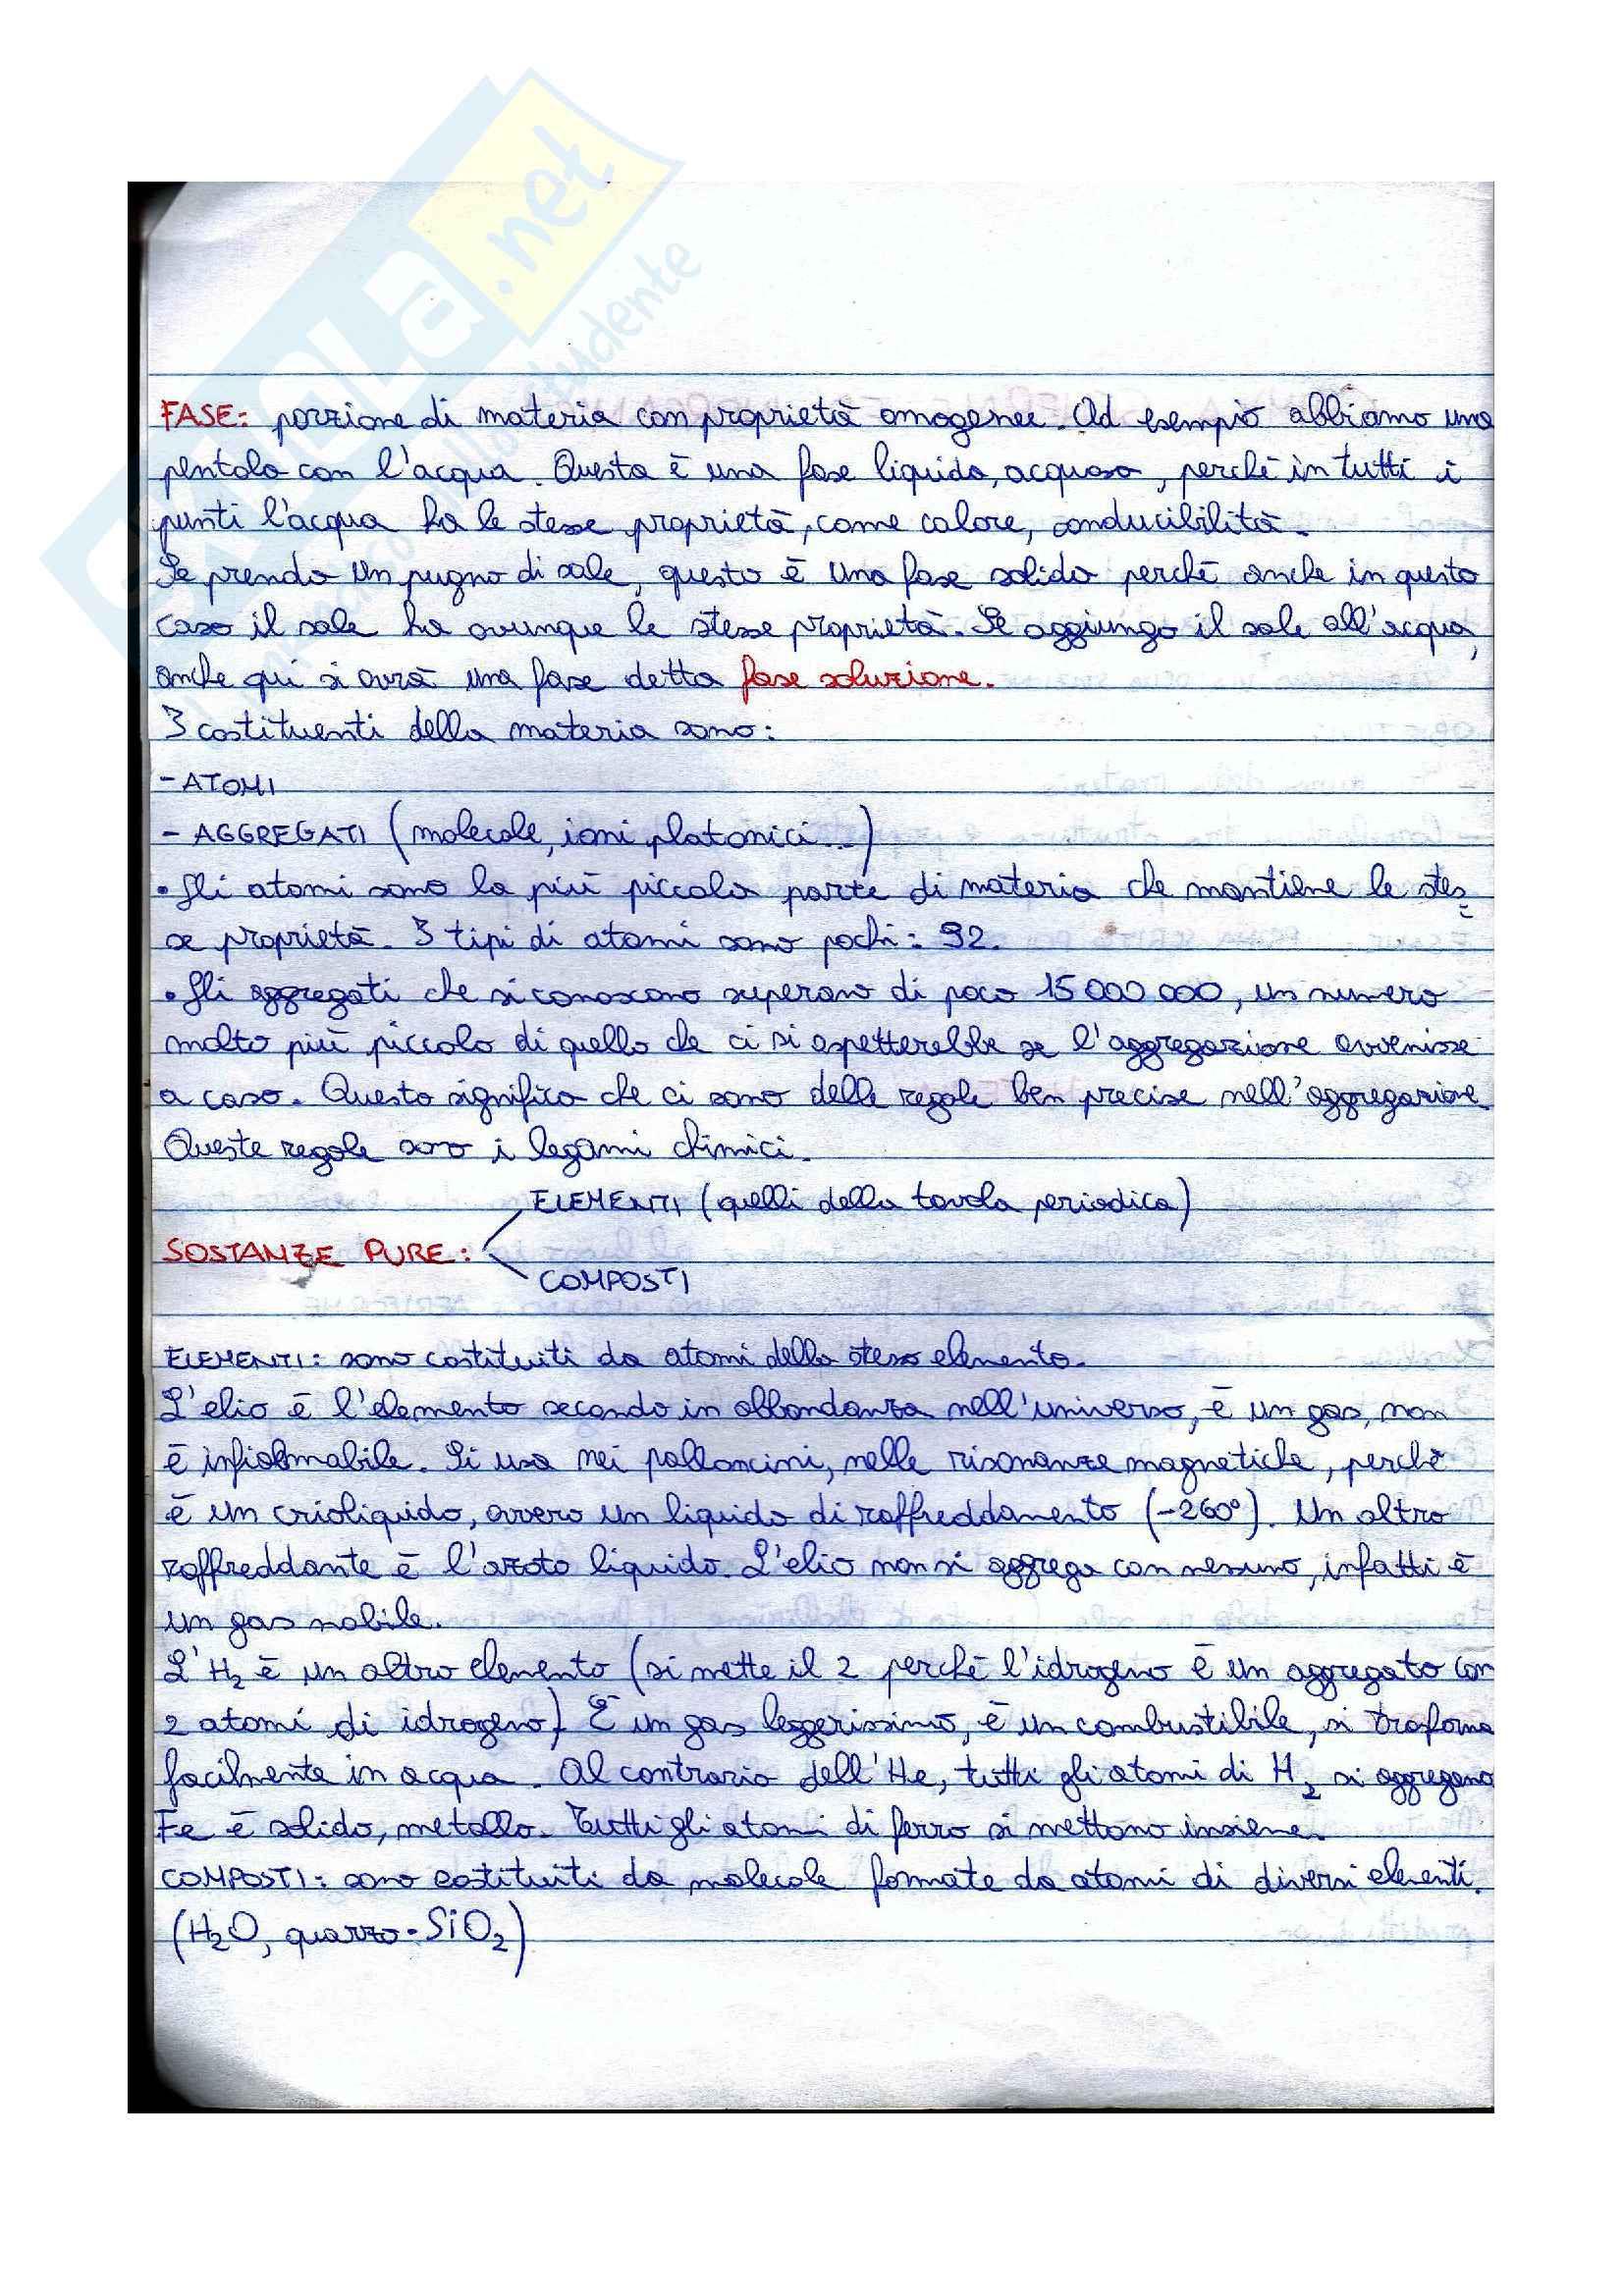 FASE: porzione di materia con proprietà omogenee. Ad esempio abbiamo una
pentola con l'acqua. Questa è una fase liquida, acquosa, perché in tutti i
punti l'acqua ha le stesse proprietà, come calore, conducibilità.
Se prendo un pugno di sale, questo è una fase solida perché anche in questo
caso il sale ha ovunque le stesse proprietà. Se aggiungo il sale all'acqua,
anche qui si avrà una fase detta fase soluzione.
I costituenti della materia sono:
- ATOMI
- AGGREGATI (molecole, ioni platonici...)
• Gli atomi sono la più piccola parte di materia che mantiene le stes=
se proprietà. I tipi di atomi sono pochi: 92.
• Gli aggregati che si conoscono superano di poco 15 000 000, un numero
molto più piccolo di quello che ci si aspetterebbe se l'aggregazione avvenisse
a caso. Questo significa che ci sono delle regole ben precise nell'aggregazione.
Queste regole sono i legami chimici.
ELEMENTI (quelli della tavola periodica)
SOSTANZE PURE:
COMPOSTI
ELEMENTI: sono costituiti da atomi dello stesso elemento.
L'elio è l'elemento secondo in abbondanza nell'universo, è un gas, non
è infiammabile. Si usa nei palloncini, nelle risonanze magnetiche, perché
è un crioliquido, ovvero un liquido di raffreddamento (-260°). Un altro
raffreddante è l'azoto liquido. L'elio non si aggrega con nessuno, infatti è
un gas nobile.
L'H₂ è un altro elemento (si mette il 2 perché l'idrogeno è un aggregato con
2 atomi di idrogeno). È un gas leggerissimo, è un combustibile, si trasforma
facilmente in acqua. Al contrario dell'He, tutti gli atomi di H₂ si aggregano
Fe è solido, metallo. Tutti gli atomi di ferro si mettono insieme.
COMPOSTI: sono costituiti da molecole formate da atomi di diversi elementi.
(H₂O, quarzo - SiO₂)
.net